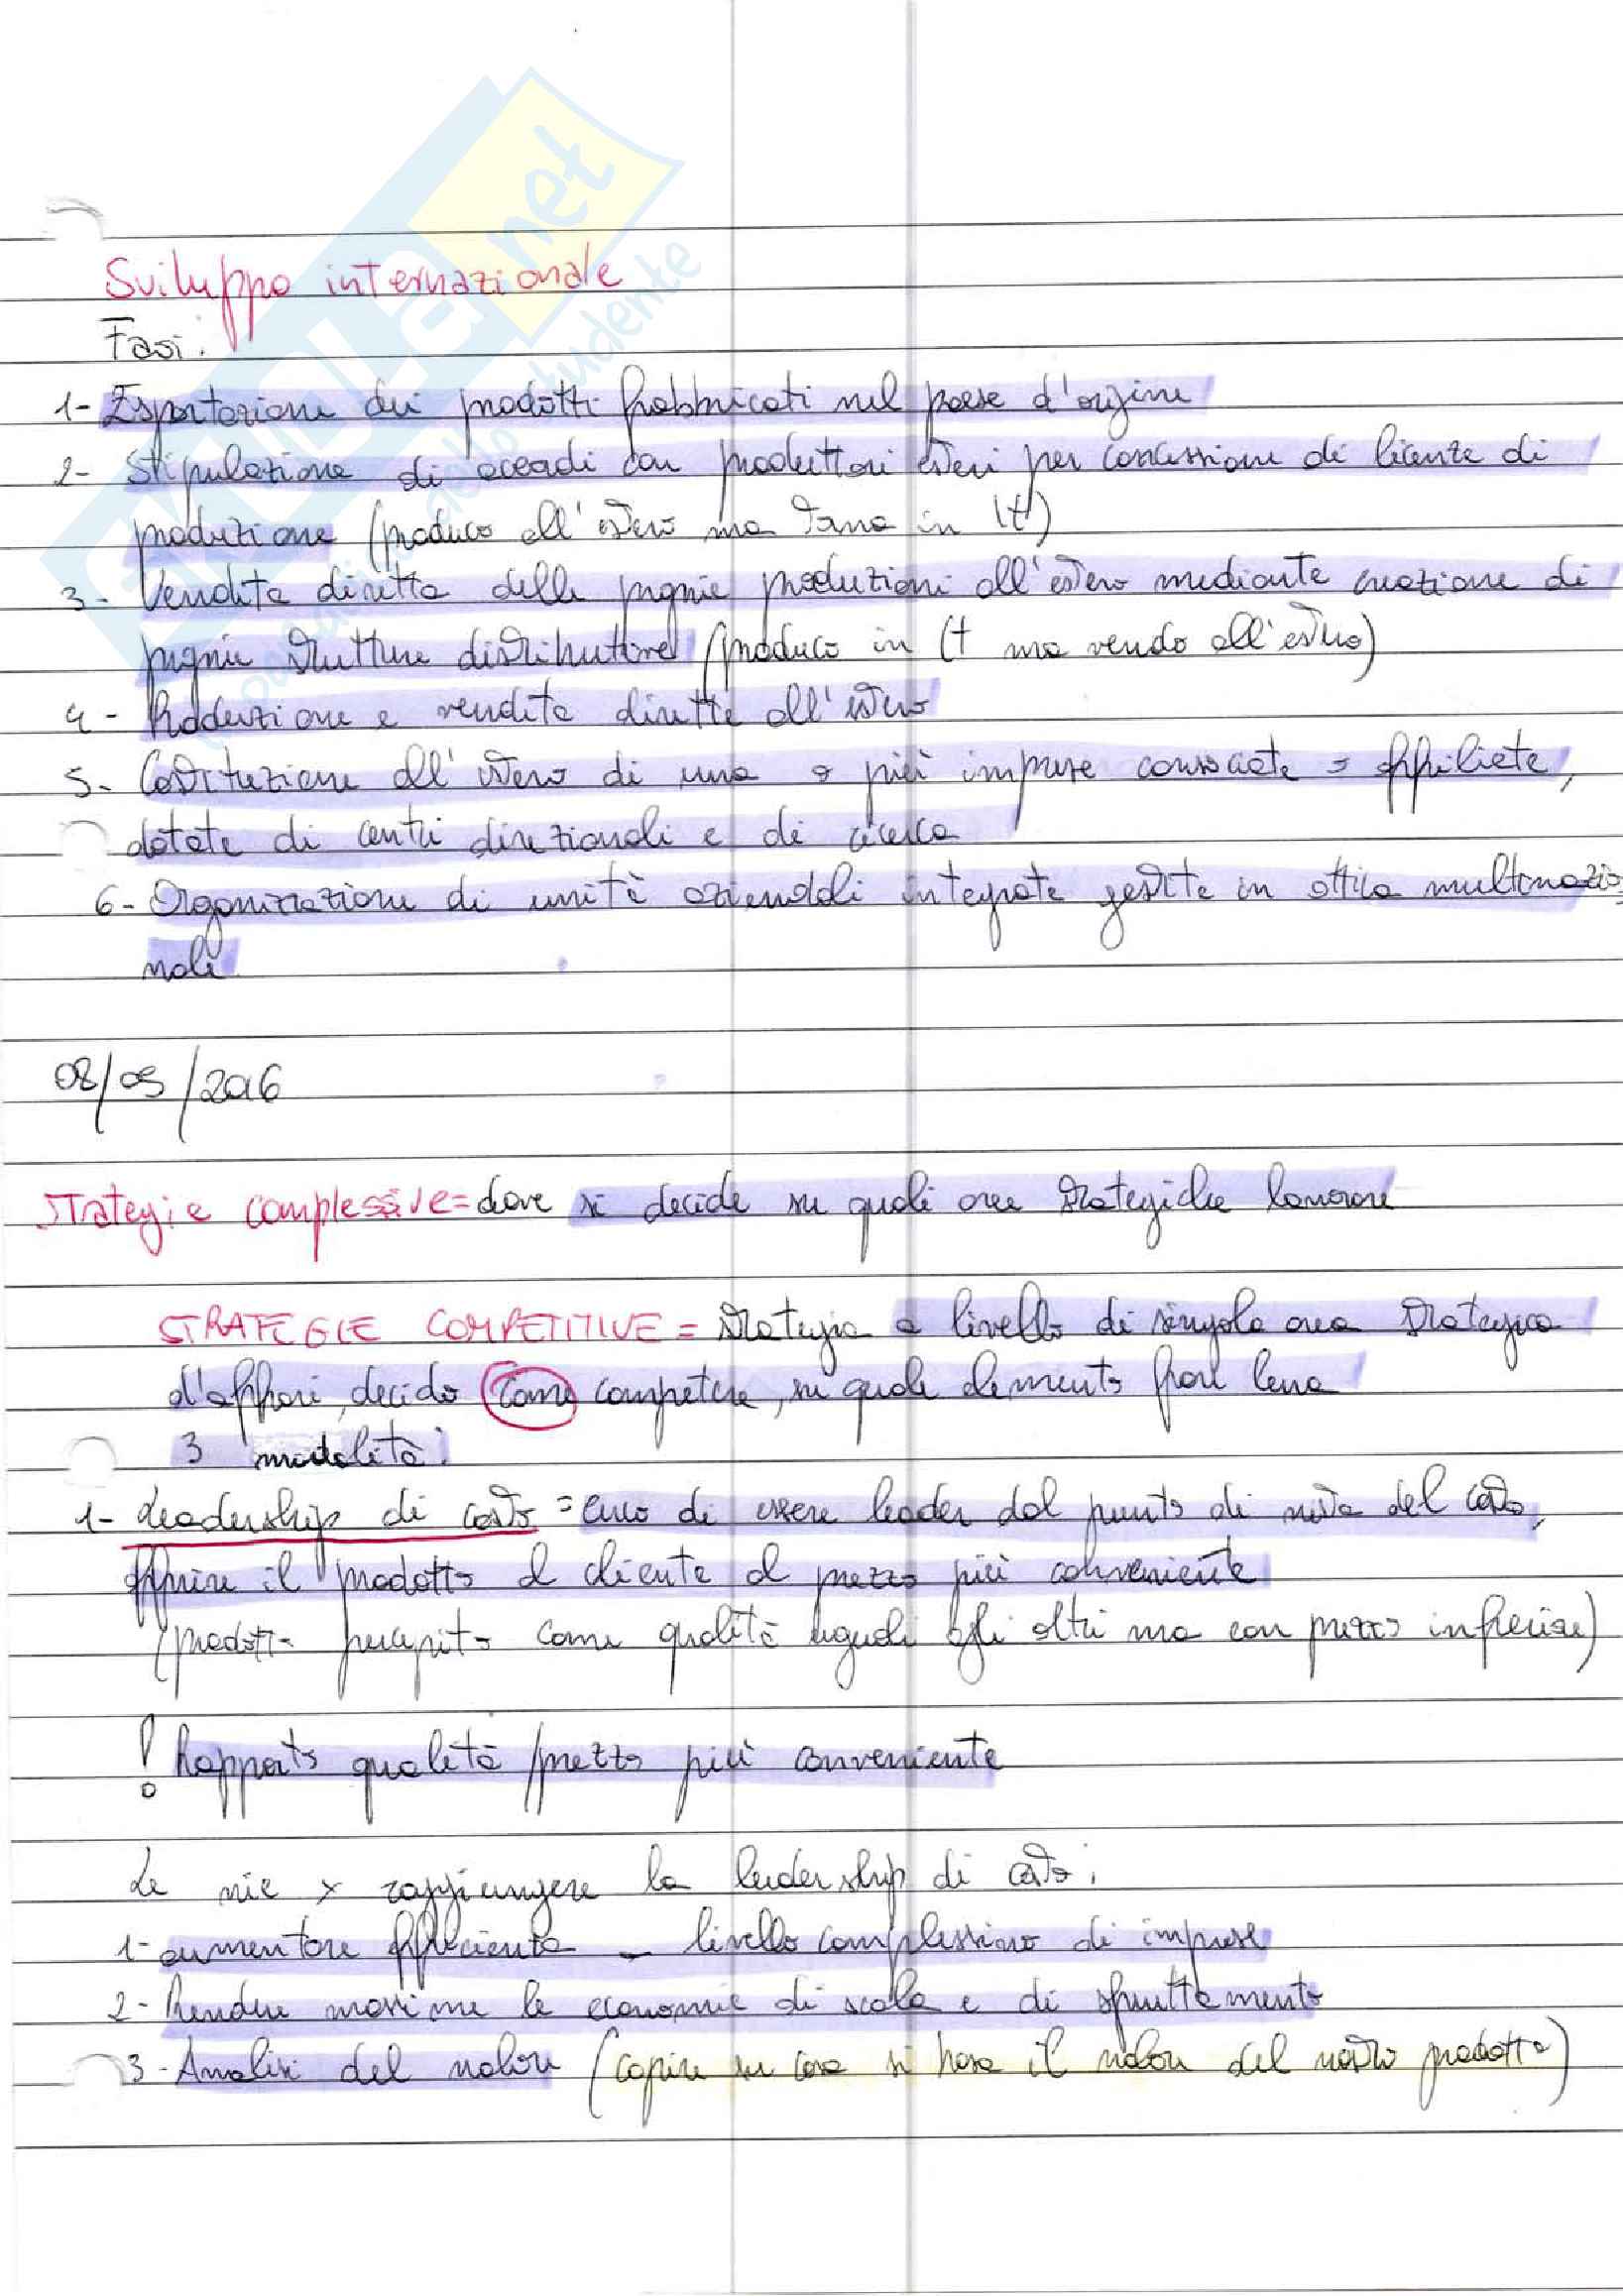 Sviluppo internazionale
Fasi:
1- Esportazione dei prodotti fabbricati nel paese d'origine
2- Stipulazione di accordi con produttori esteri per concessione di licenze di
produzione (produco all'estero ma torna in It)
3- Vendita diretta delle proprie produzioni all'estero mediante creazione di
proprie strutture distributive (produco in It ma vendo all'estero)
4- Produzione e vendita dirette all'estero
5- Costituzione all'estero di una o più imprese consociate o affiliate,
dotate di centri direzionali e di ricerca
6- Organizzazione di unità aziendali integrate gestite in ottica multinazio
nale
08/05/2016
Strategie complessive = dove si decide su quali aree strategiche lavorare
STRATEGIE COMPETITIVE = strategia a livello di singola area strategica
d'affari, decido come competere, su quale elemento fare leva
3 modalità:
1- Leadership di costo = cerco di essere leader dal punto di vista del costo,
offrire il prodotto al cliente al prezzo più conveniente
(prodotto percepito come qualità uguali agli altri ma con prezzo inferiore)
! Rapporto qualità/prezzo più conveniente
Le vie x raggiungere la leadership di costo:
1- aumentare efficienza - livello complessivo di imprese
2- Rendere massime le economie di scala e di sfruttamento
3- Analisi del valore (capire su cosa si basa il valore del nostro prodotto)
ekuola.net